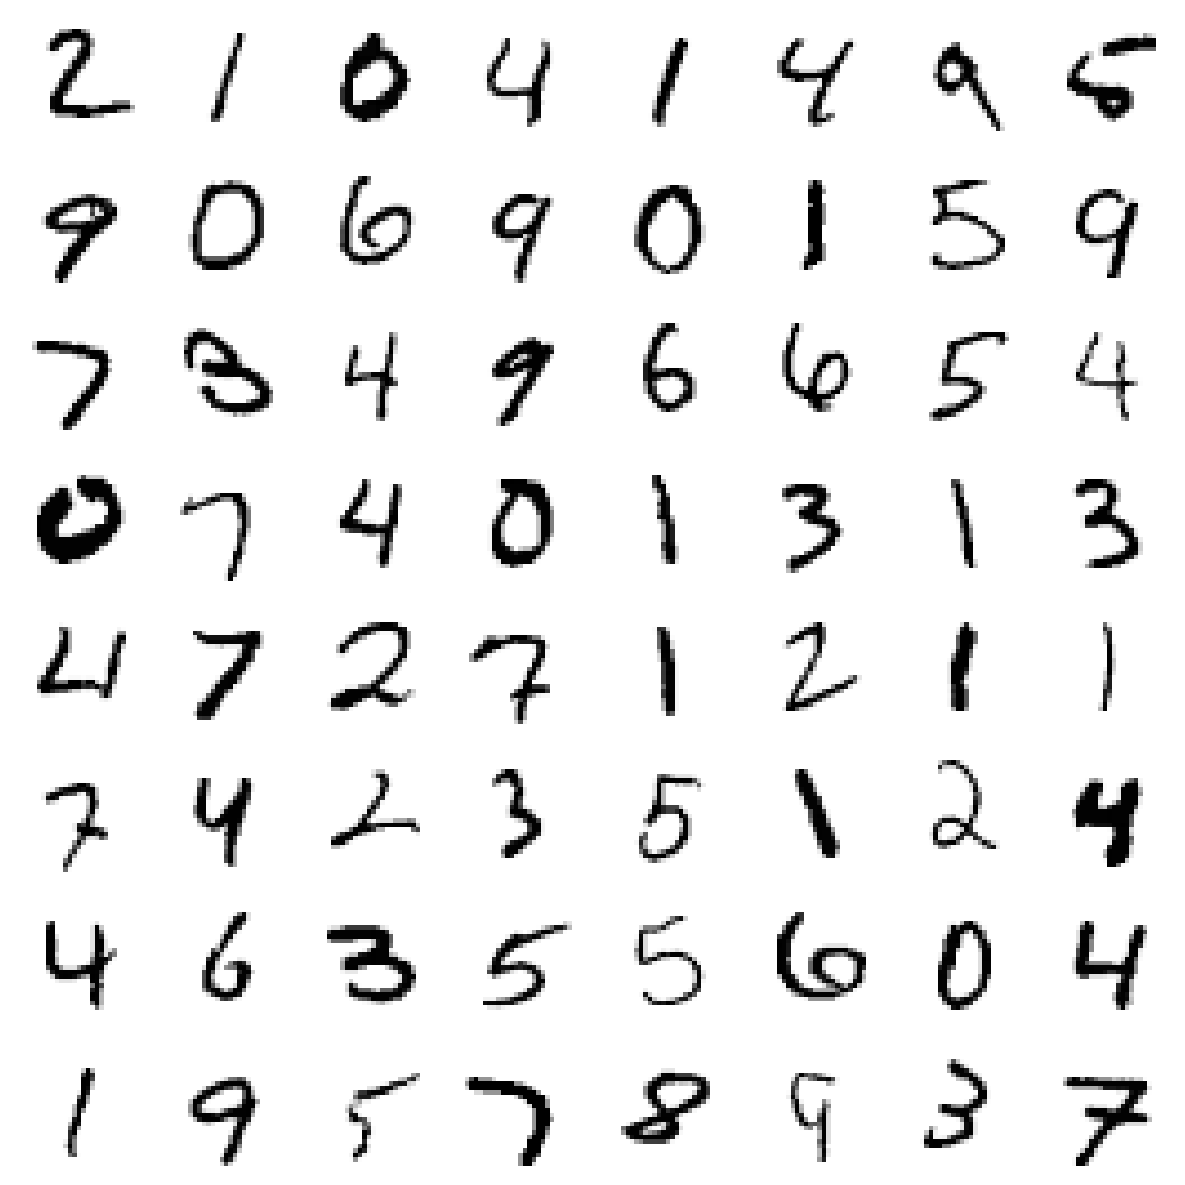 2 1 0 4 1 4 9 5
9 0 6 9 0 1 5 9
7 3 4 9 6 6 5 4
0 7 4 0 1 3 1 3
4 7 2 7 1 2 1 1
7 4 2 3 5 1 2 4
4 6 3 5 5 6 0 4
1 9 5 7 8 9 3 7